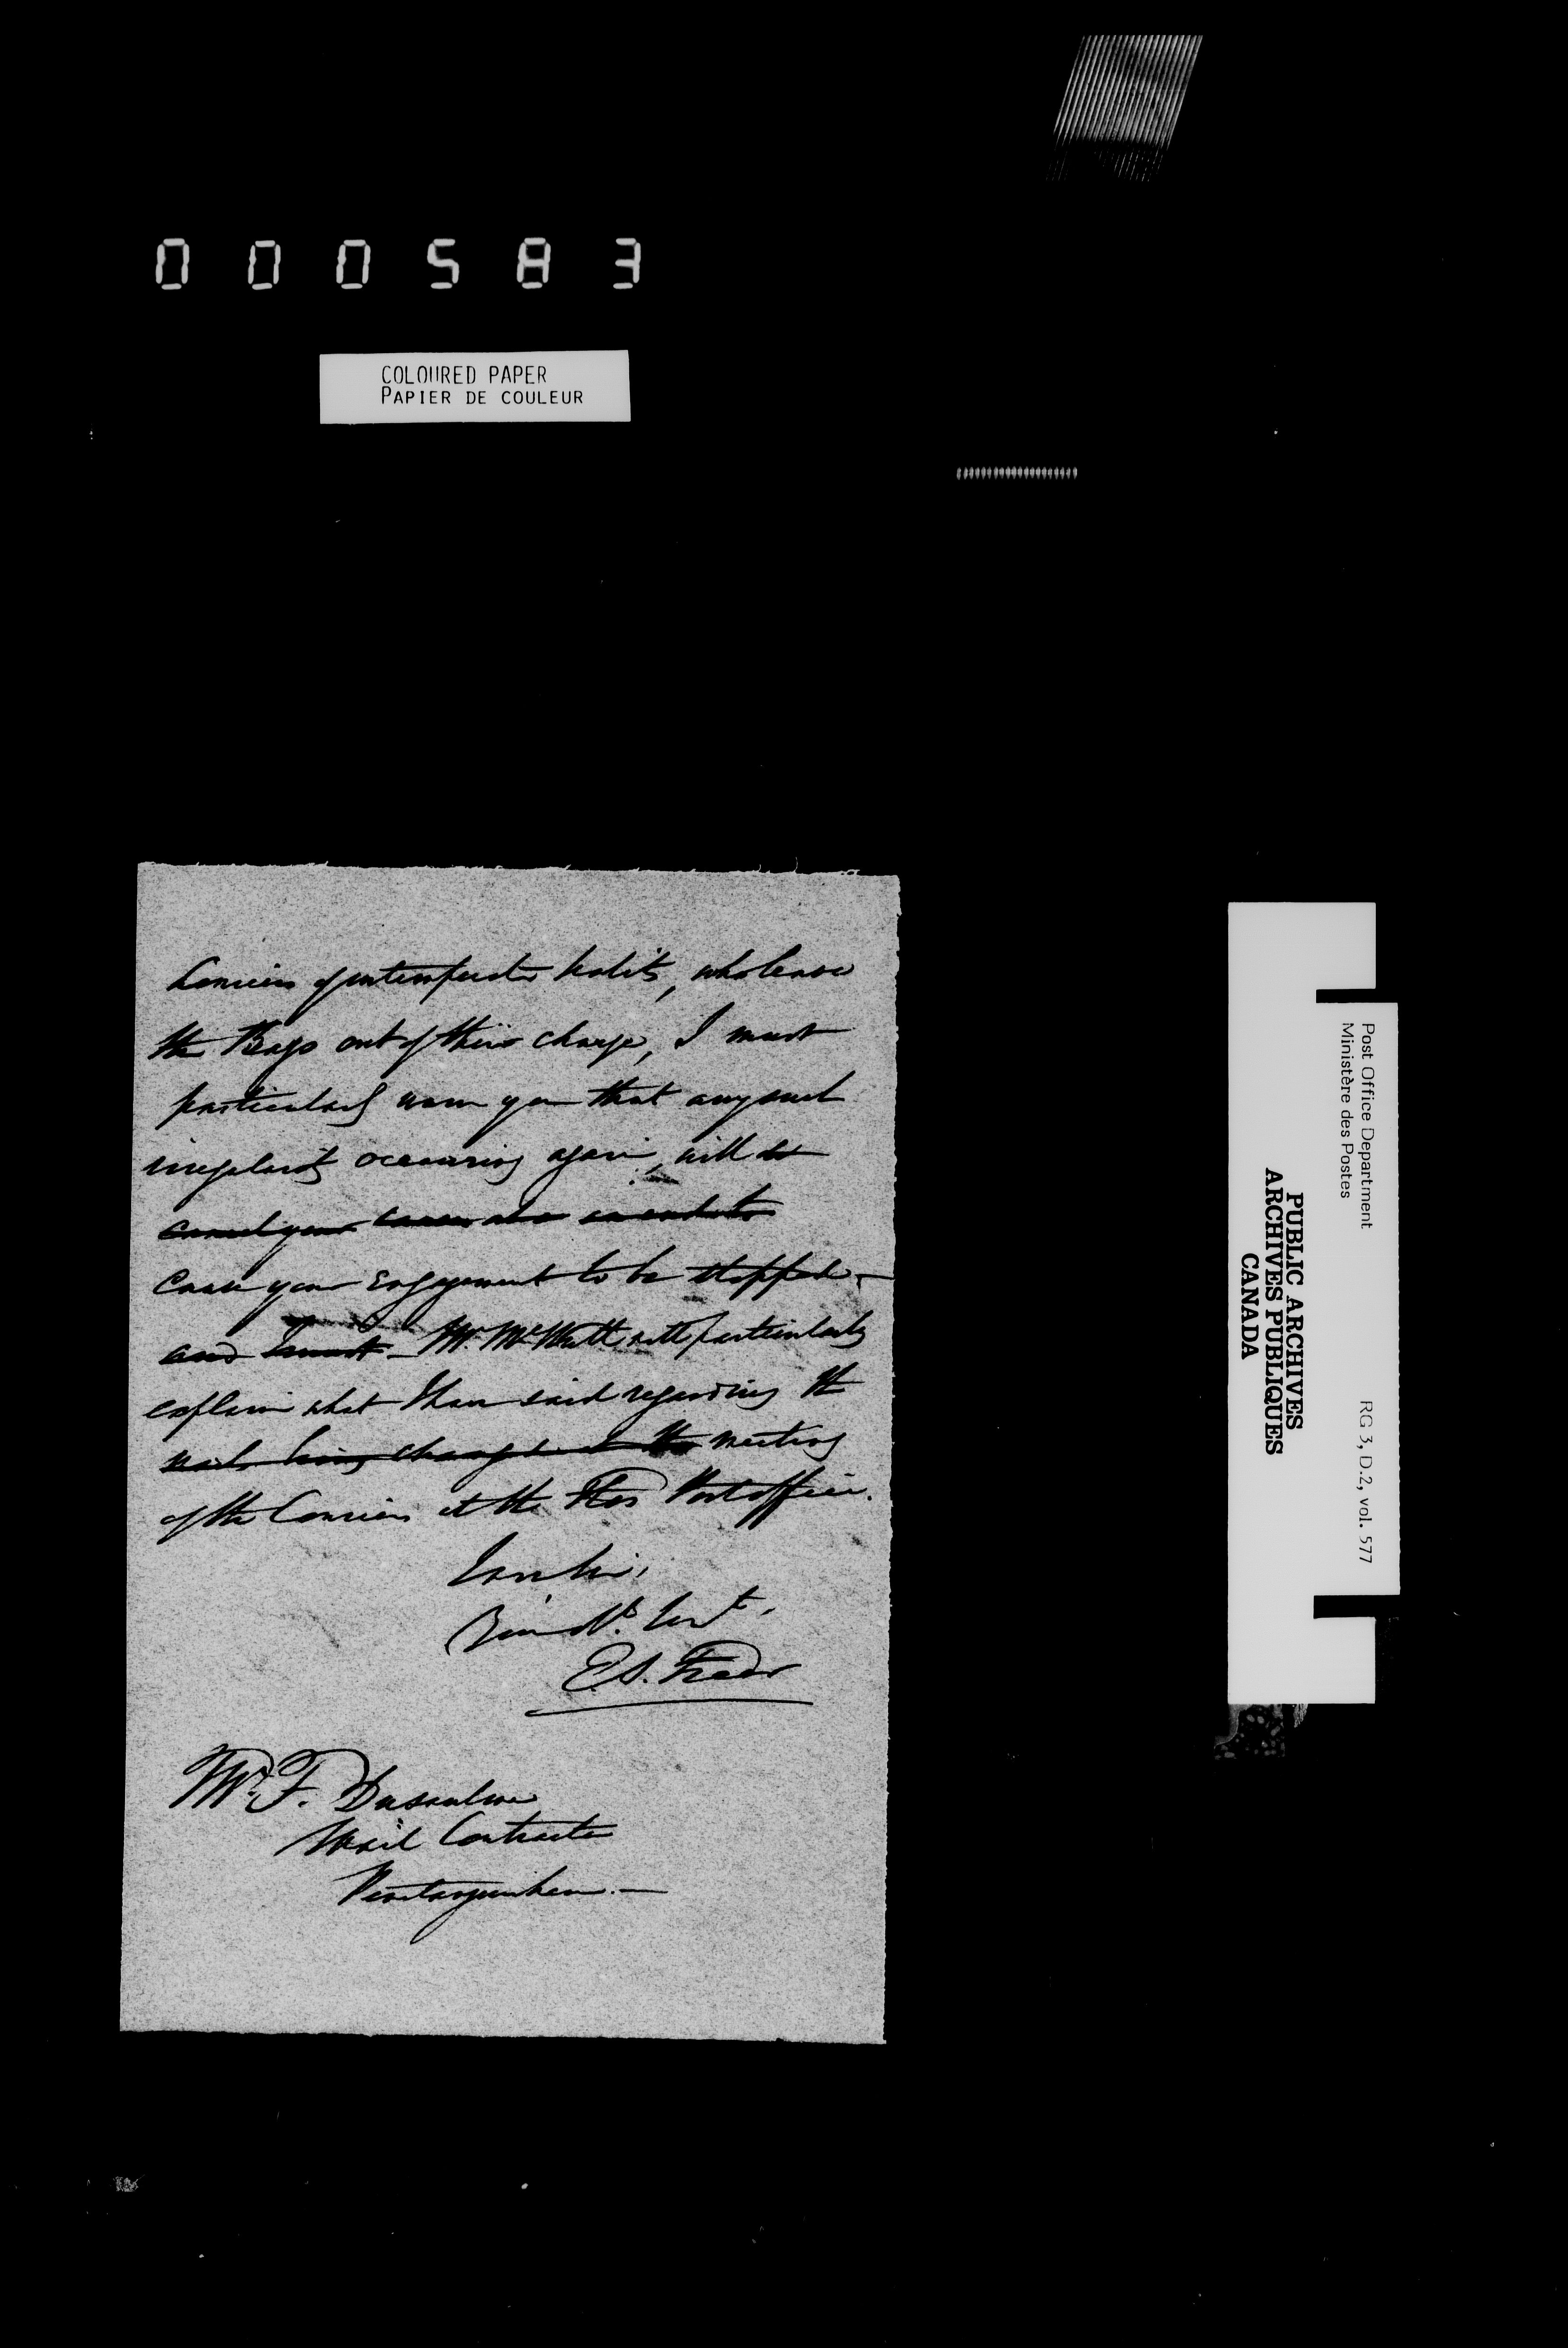 000583
COLOURED PAPER
PAPIER DE COULEUR
Couriers of intemperate habits, who leave
the Bags out of their charge, I must
particularly warn you that any such
irregularity occurring again, will
cause your engagement to be stopped -
and Mr. McWatt will particularly
explain what I have said regarding the
mails being changed at the meeting
of the Couriers at the Flos Post office.
I am Sir,
E.S. Freer
Mr. F. Dusaulme
Mail Contractor
Penetanguishene. -
Post Office Department
Ministère des Postes
RG 3, D.2, vol. 577
PUBLIC ARCHIVES
ARCHIVES PUBLIQUES
CANADA